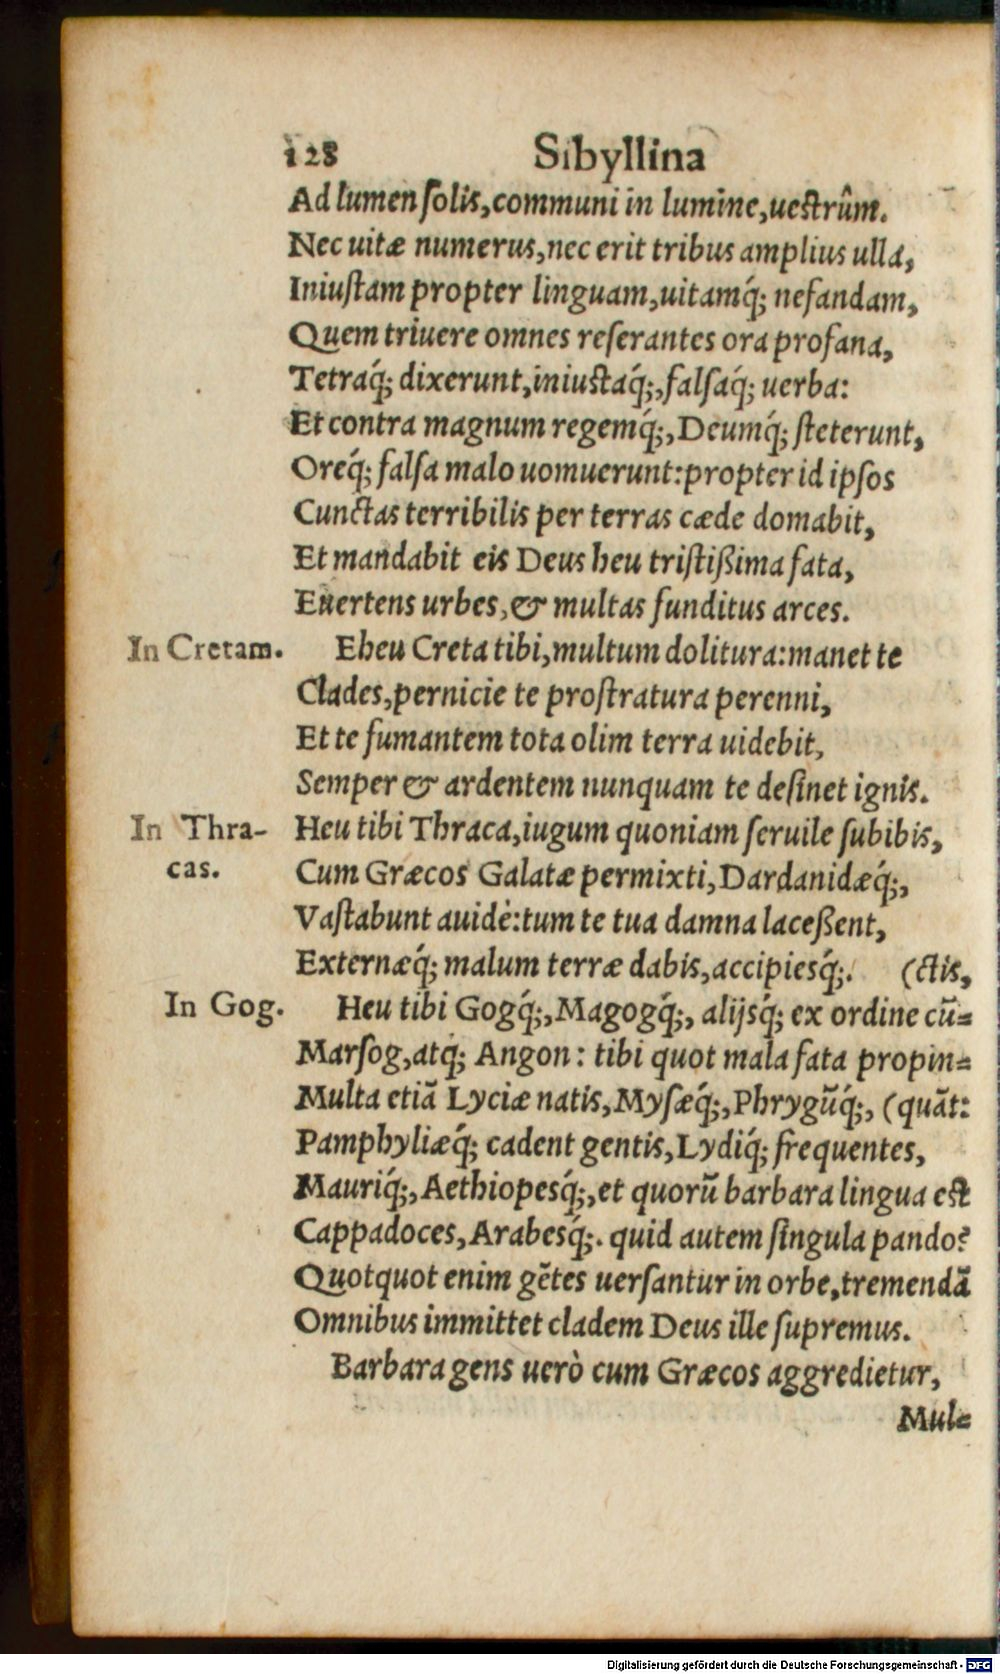 128 Sibyllina
Ad lumen ſolis,communi in lumine,ueſtrûm.
Nec uitæ numerus,nec erit tribus amplius ulla,
Iniuſtam propter linguam,uitamq́; nefandam,
Quem triuere omnes reſerantes ora profana,
Tetraq́; dixerunt,iniuſtaq́;,falſaq́; uerba:
Et contra magnum regemq́;,Deumq́; ſteterunt,
Oreq́; falſa malo uomuerunt:propter id ipſos
Cunctas terribilis per terras cæde domabit,
Et mandabit eis Deus heu triſtißima fata,
Euertens urbes,& multas funditus arces.
In Cretam. Eheu Creta tibi,multum dolitura:manet te
Clades,pernicie te proſtratura perenni,
Et te fumantem tota olim terra uidebit,
Semper & ardentem nunquam te deſinet ignis.
In Thra- Heu tibi Thraca,iugum quoniam ſeruile ſubibis,
cas. Cum Græcos Galatæ permixti,Dardanidæq́;,
Vaſtabunt auidè:tum te tua damna laceßent,
Externæq́; malum terræ dabis,accipiesq́;. (ctis,
In Gog. Heu tibi Gogq́;,Magogq́;, alijsq́; ex ordine cū=
Marſog,atq; Angon: tibi quot mala fata propin=
Multa etiā Lyciæ natis,Myſæq́;,Phrygūq́;, (quāt:
Pamphyliæq́; cadent gentis,Lydiq́; frequentes,
Mauriq́;,Aethiopesq́;,et quorū barbara lingua eſt
Cappadoces,Arabesq́;. quid autem ſingula pando?
Quotquot enim gētes uerſantur in orbe,tremendā
Omnibus immittet cladem Deus ille ſupremus.
Barbara gens uerò cum Græcos aggredietur,
Mul=
Digitalisierung gefördert durch die Deutsche Forschungsgemeinschaft - DFG